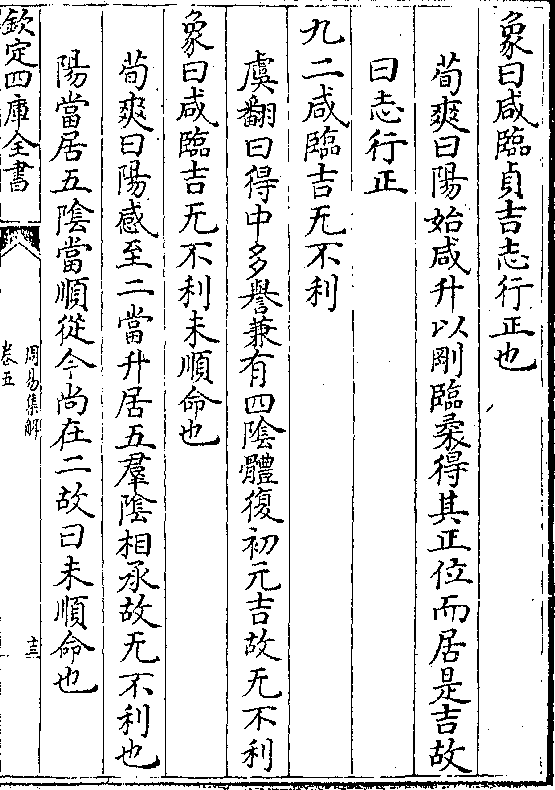 象曰咸臨貞吉志行正也
荀爽曰陽始咸升以剛臨柔得其正位而居是吉故
曰志行正
九二咸臨吉无不利
虞翻曰得中多譽兼有四陰體復初元吉故无不利
象曰咸臨吉无不利未順命也
荀爽曰陽感至二當升居五羣陰相承故无不利也
陽當居五陰當順從今尚在二故曰未順命也
欽定四庫全書
周易集解
卷五
十三